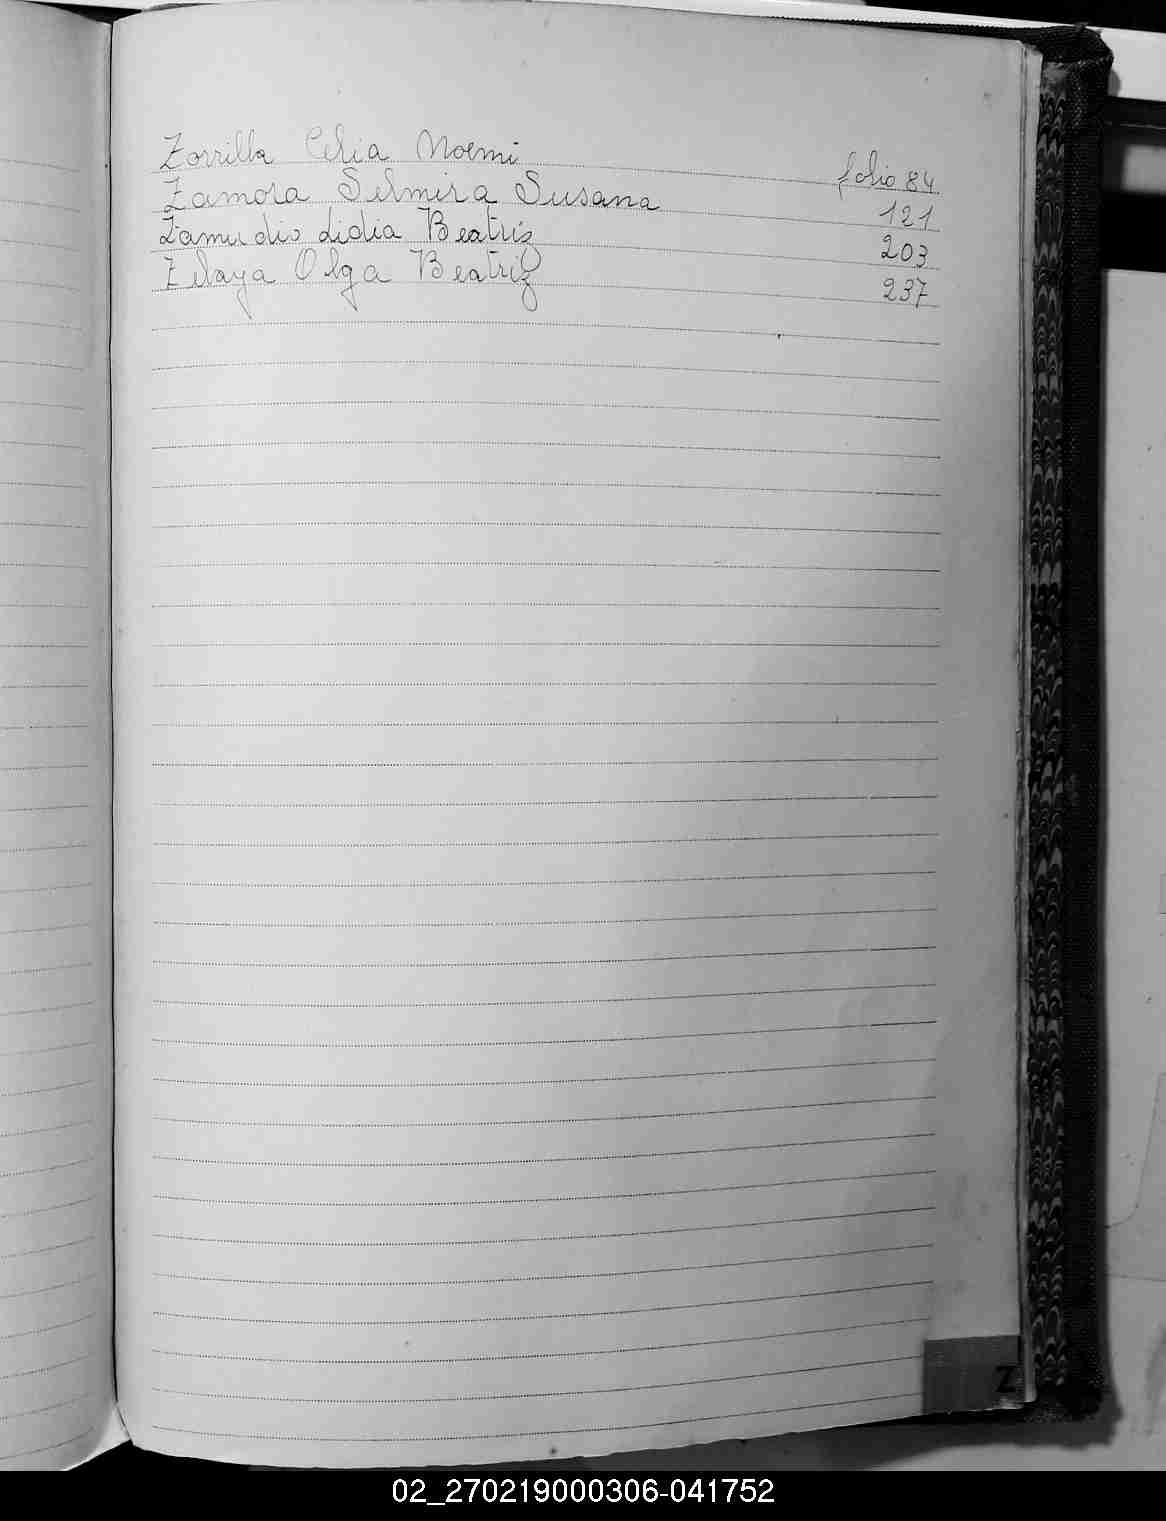 Zorrilla Celia Noemi folio 84
Zamora Selmira Susana 121
Zamudio Lidia Beatriz 203
Zelaya Olga Beatriz 237
Z
02_270219000306-041752